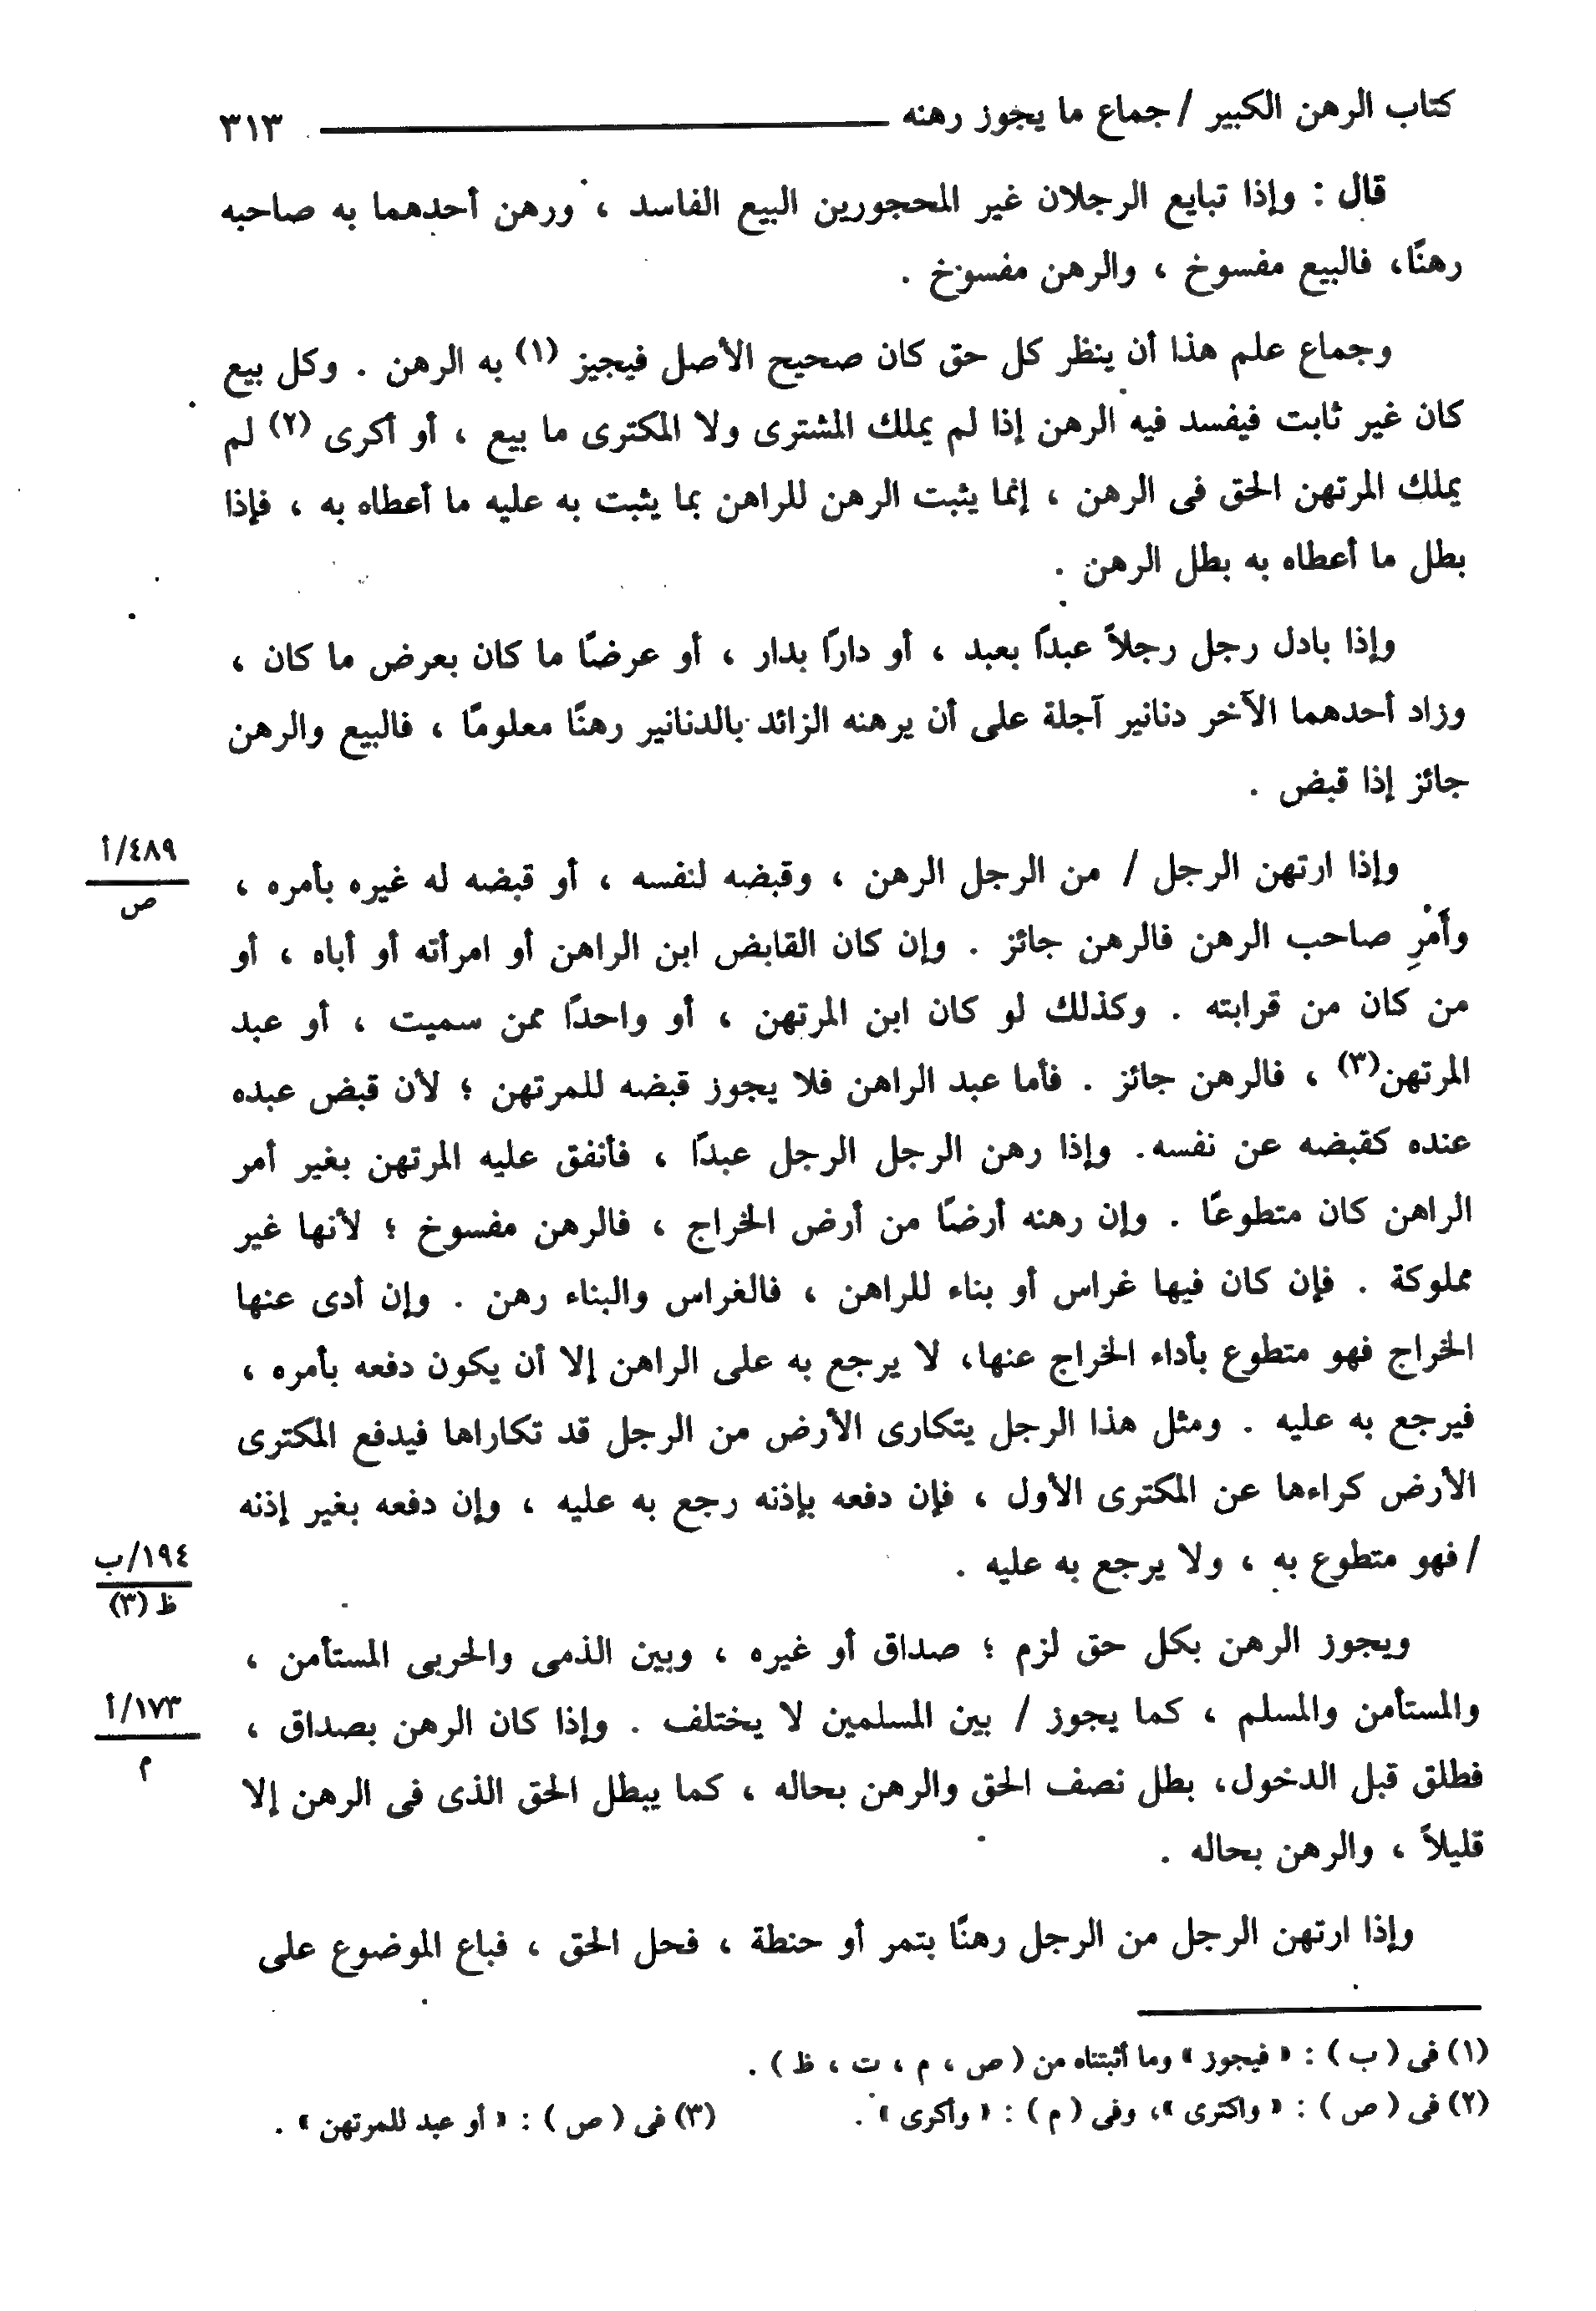 كتاب الرهن الكبير / جماع ما يجوز رهنه ٣١٣
قال : وإذا تبايع الرجلان غير المحجورين البيع الفاسد ، ورهن أحدهما به صاحبه
رهنًا، فالبيع مفسوخ ، والرهن مفسوخ .
وجماع علم هذا أن ينظر كل حق كان صحيح الأصل فيجيز (١) به الرهن . وكل بيع
كان غير ثابت فيفسد فيه الرهن إذا لم يملك المشترى ولا المكترى ما بيع ، أو أكرى (٢) لم
يملك المرتهن الحق فى الرهن ، إنما يثبت الرهن للراهن بما يثبت به عليه ما أعطاه به ، فإذا
بطل ما أعطاه به بطل الرهن .
وإذا بادل رجل رجلاً عبدًا بعبد ، أو دارًا بدار ، أو عرضًا ما كان بعرض ما كان ،
وزاد أحدهما الآخر دنانير آجلة على أن يرهنه الزائد بالدنانير رهنًا معلومًا ، فالبيع والرهن
جائز إذا قبض .
٤٨٩/أ
ص
وإذا ارتهن الرجل / من الرجل الرهن ، وقبضه لنفسه ، أو قبضه له غيره بأمره ،
وأَمْرِ صاحب الرهن فالرهن جائز . وإن كان القابض ابن الراهن أو امرأته أو أباه ، أو
من كان من قرابته . وكذلك لو كان ابن المرتهن ، أو واحدًا ممن سميت ، أو عبد
المرتهن(٣) ، فالرهن جائز . فأما عبد الراهن فلا يجوز قبضه للمرتهن ؛ لأن قبض عبده
عنده كقبضه عن نفسه. وإذا رهن الرجل الرجل عبدًا ، فأنفق عليه المرتهن بغير أمر
الراهن كان متطوعًا . وإن رهنه أرضًا من أرض الخراج ، فالرهن مفسوخ ؛ لأنها غير
مملوكة . فإن كان فيها غراس أو بناء للراهن ، فالغراس والبناء رهن . وإن أدى عنها
الخراج فهو متطوع بأداء الخراج عنها، لا يرجع به على الراهن إلا أن يكون دفعه بأمره ،
فيرجع به عليه . ومثل هذا الرجل يتكارى الأرض من الرجل قد تكاراها فيدفع المكترى
الأرض كراءها عن المكترى الأول ، فإن دفعه بإذنه رجع به عليه ، وإن دفعه بغير إذنه
/ فهو متطوع به ، ولا يرجع به عليه .
١٩٤/ب
ظ (٣)
ويجوز الرهن بكل حق لزم ؛ صداق أو غيره ، وبين الذمى والحربى المستأمن ،
والمستأمن والمسلم ، كما يجوز / بين المسلمين لا يختلف . وإذا كان الرهن بصداق ،
١٧٣/أ
م
فطلق قبل الدخول، بطل نصف الحق والرهن بحاله ، كما يبطل الحق الذى فى الرهن إلا
قليلاً ، والرهن بحاله .
وإذا ارتهن الرجل من الرجل رهنًا بتمر أو حنطة ، فحل الحق ، فباع الموضوع على
(١) فى ( ب ) : « فيجوز » وما أثبتناه من ( ص ، م ، ت ، ظ ) .
(٢) فى ( ص ) : « واكترى »، وفى ( م ) : « وأكرى » . (٣) فى ( ص ) : « أو عبد للمرتهن » .